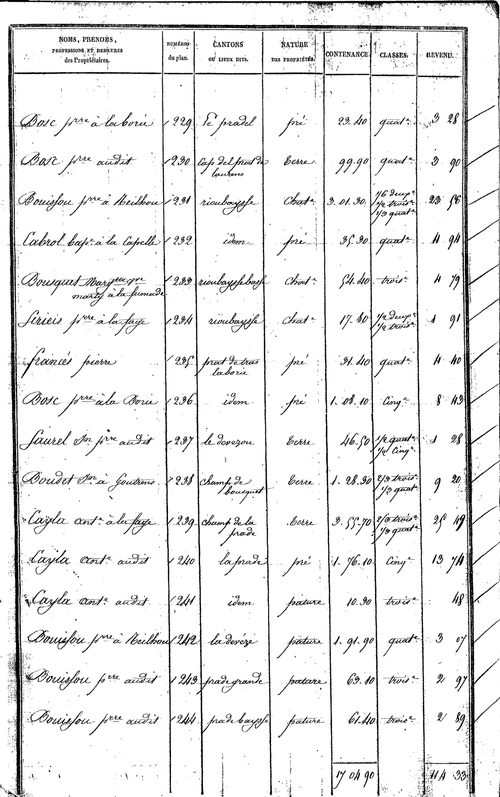 NOMS, PRÉNOMS, PROFESSIONS, ET DEMEURES des Propriétaires. NUMÉROS du plan. CANTONS OU LIEUX DITS. NATURE DES PROPRIÉTÉS. CONTENANCE. CLASSES. REVENU.
Bosc pre à la borie 1229 Le pradel pré 23.40 quat.e 3 28
Bosc pre audit 1230 Cap del prat de laurens terre 99.90 quat.e 3 90
Bouissou pre à Neilhou 1231 rioubaysse Chat.e 3.01.30 1/6 deux.e 1/2 trois.e 1/3 quat.e 23 56
Cabrol Bap.e à la Capelle 1232 idem pré 35.30 quat.e 4 94
Bousquet Marg 1233 rioubaysse basse Chat.e 54.40 trois.e 4 79
marty à la fumade
Serieis pre à la faye 1234 rioubaysse Chat.e 17.40 1/2 deux.e 1/2 trois.e 1 91
francés pierre 1235 prat de tras la borie pré 31.40 quat.e 4 40
Bosc pre à la Borie 1236 idem pré 1.08.10 Cinq.e 8 43
Laurel Jn pre audit 1237 le devezou terre 46.50 1/2 quat.e 1/2 Cinq.e 1 28
Boudet Jn à Goutrens 1238 champ de bousquet terre 1.28.30 2/3 trois.e 1/3 quat.e 9 20
Cayla ant.e à la faye 1239 champ de la prade terre 3.55.70 2/3 trois.e 1/3 quat.e 25 49
Cayla ant.e audit 1240 la prade pré 1.76.10 Cinq.e 13 74
Cayla ant.e audit 1241 idem pature 10.30 trois.e 48
Bouissou pre à Neilhou 1242 la devèze pature 1.91.90 quat.e 3 07
Bouissou pre audit 1243 prade grande pature 63.10 trois.e 2 97
Bouissou pre audit 1244 prade baysse pature 61.40 trois.e 2 89
17 04 90 114 33